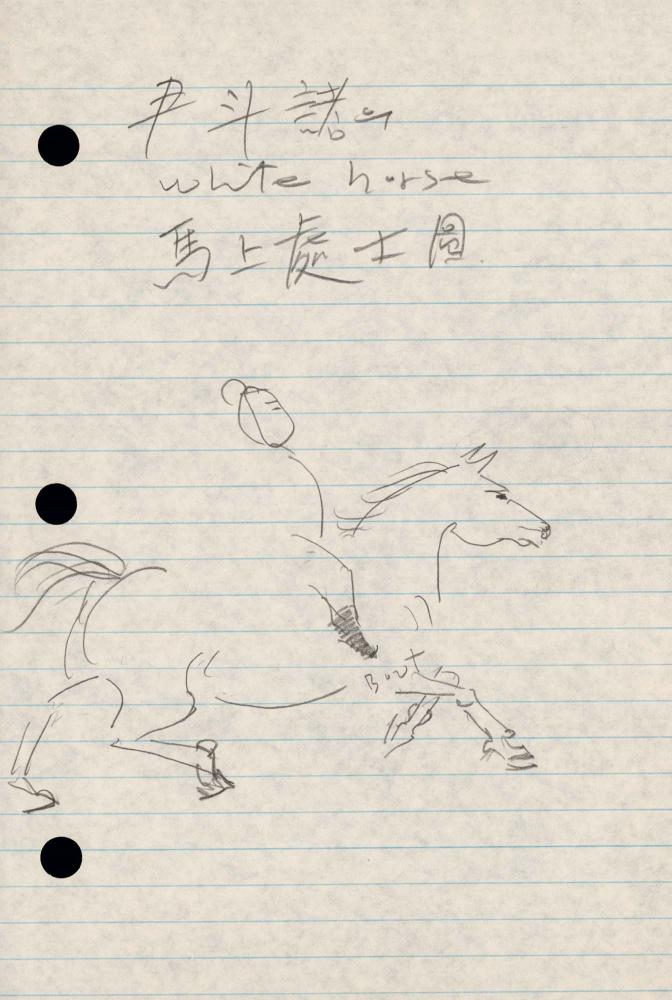 尹斗諸의
white horse
馬上處士圖.
Boot